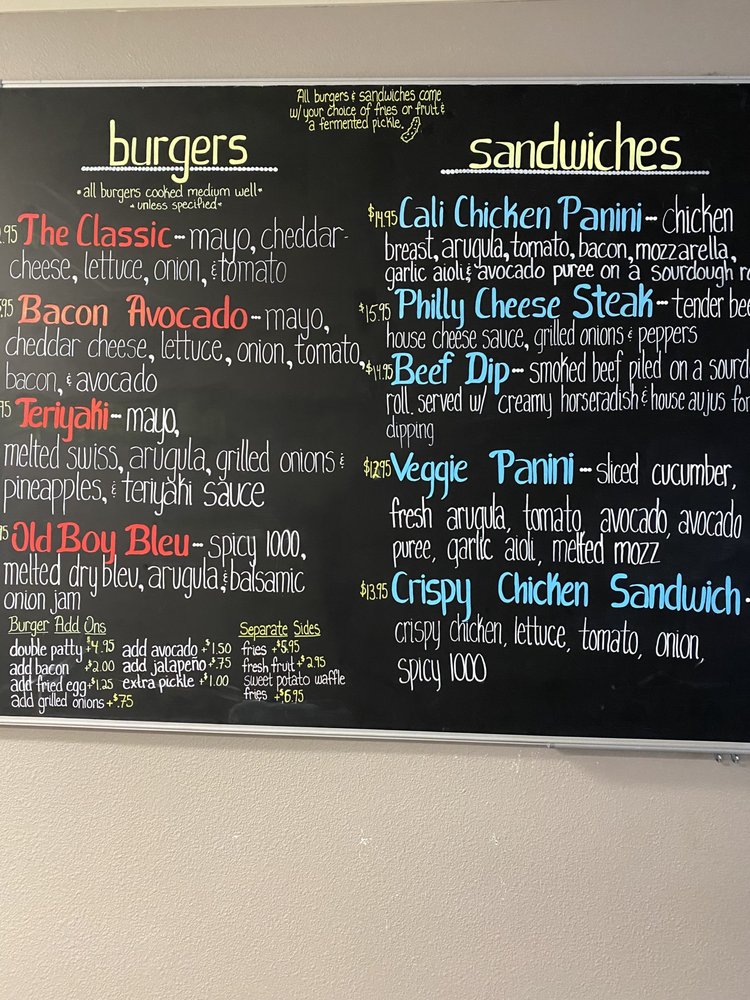 All burgers & sandwiches come
w/ your choice of fries or fruit &
a fermented pickle.
burgers
*all burgers cooked medium well*
*unless specified*
.95 The Classic-- mayo, cheddar-
cheese, lettuce, onion, & tomato
.95 Bacon Avocado- mayo,
cheddar cheese, lettuce, onion, tomato,
bacon, & avocado
95 Teriyaki- mayo,
melted swiss, arugula, grilled onions &
pineapples, & teriyaki sauce
95 Old Boy Bleu-- spicy 1000,
melted dry bleu, arugula, & balsamic
onion jam
Burger Add Ons
double patty +$4.95
add bacon +$2.00
add fried egg +$1.25
add grilled onions +$.75
add avocado +$1.50
add jalapeño +$.75
extra pickle +$1.00
Separate Sides
fries +$5.95
fresh fruit +$2.95
sweet potato waffle
fries +$6.95
sandwiches
$14.95 Cali Chicken Panini-- chicken
breast, arugula, tomato, bacon, mozzarella,
garlic aioli & avocado puree on a sourdough
$15.95 Philly Cheese Steak-- tender
house cheese sauce, grilled onions & peppers
$14.95 Beef Dip-- smoked beef piled on a
roll. served w/ creamy horseradish & house aujus for
dipping
$12.95 Veggie Panini-- sliced cucumber,
fresh arugula, tomato, avocado, avocado
puree, garlic aioli, melted mozz
$13.95 Crispy Chicken Sandwich-
crispy chicken, lettuce, tomato, onion,
spicy 1000